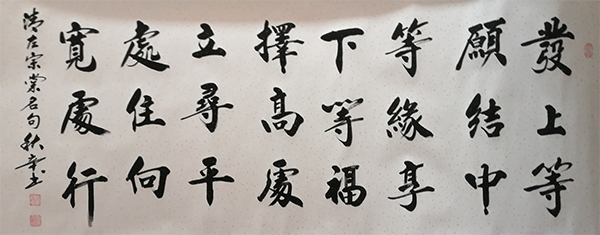 發上等
願結中
等緣享
下等福
擇高處
立尋平
處住向
寬處行
清左宗棠名句秋书